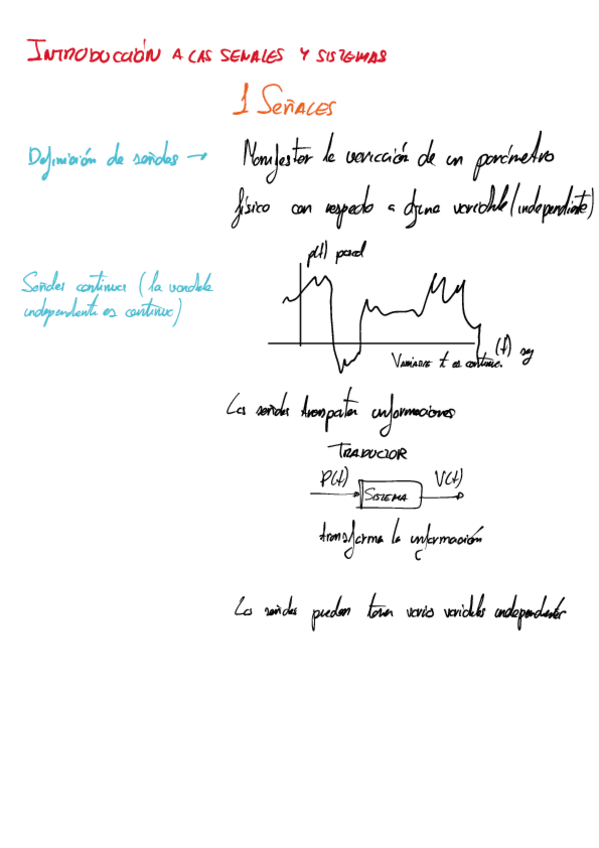 INTRODUCCIÓN A LAS SEÑALES Y SISTEMAS
1 SEÑALES
Definición de señales → Manifestar la variación de un parámetro
físico con respecto a alguna variable (independiente)
p(t) pascal
Señales continuas (la variable
independiente es continua)
Variable t es continua.
(t) seg
Las señales transportan informaciones
TRADUCTOR
P(t)
SISTEMA
V(t)
transforma la información
Las señales pueden tener varias variables independientes